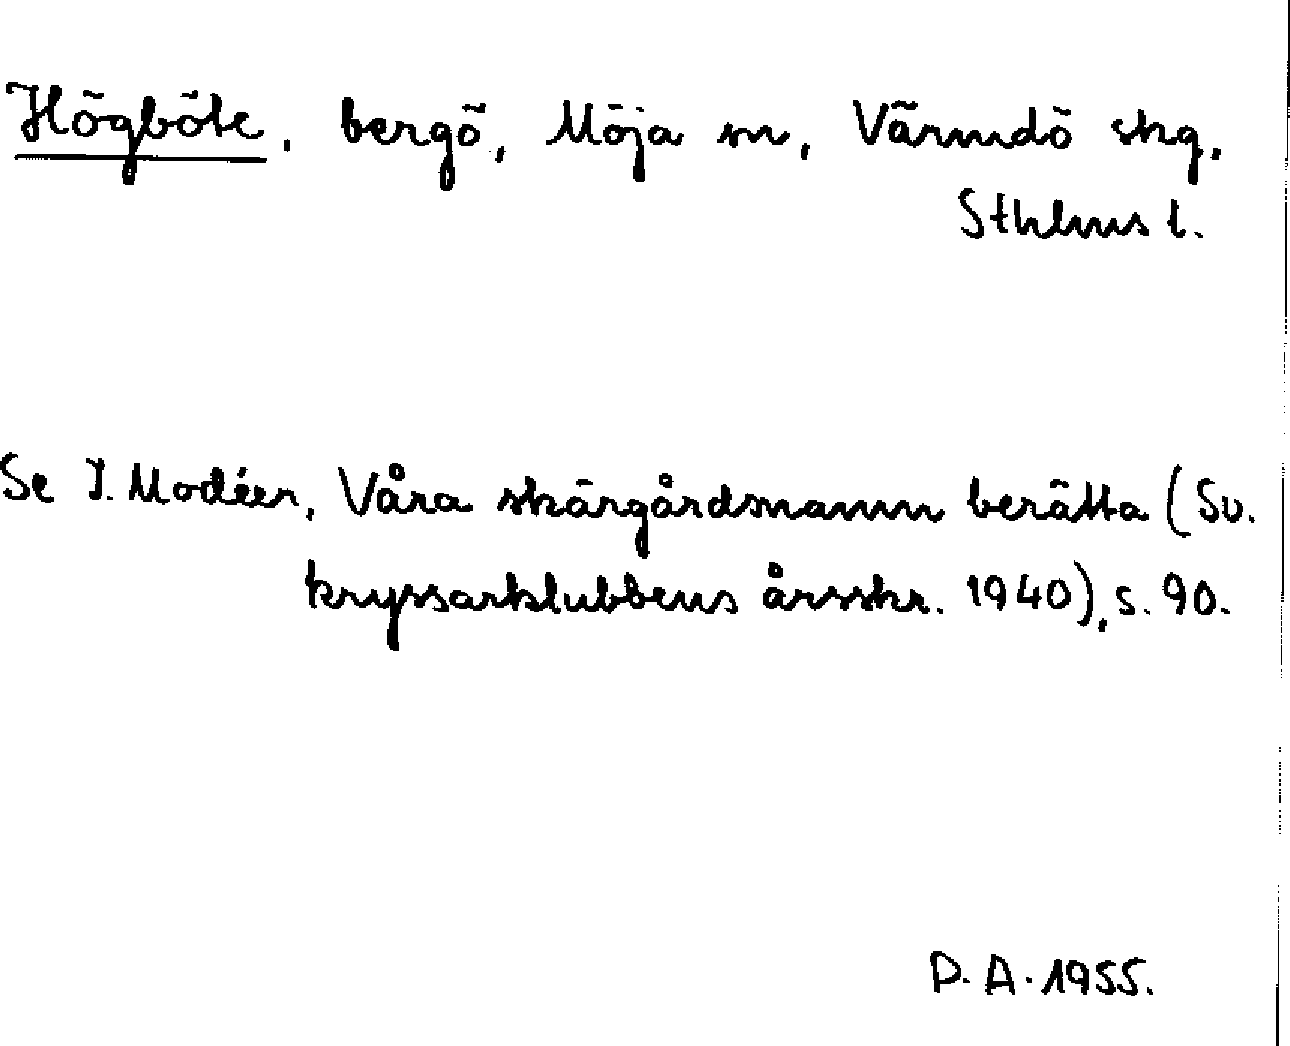 Högböte, bergö, Möja sn, Värmdö skg,
Sthlms l.
Se I. Modéer, Våra skärgårdsnamn berätta (Sv.
kryssarklubbens årsskr. 1940), s. 90.
D. A. 1955.